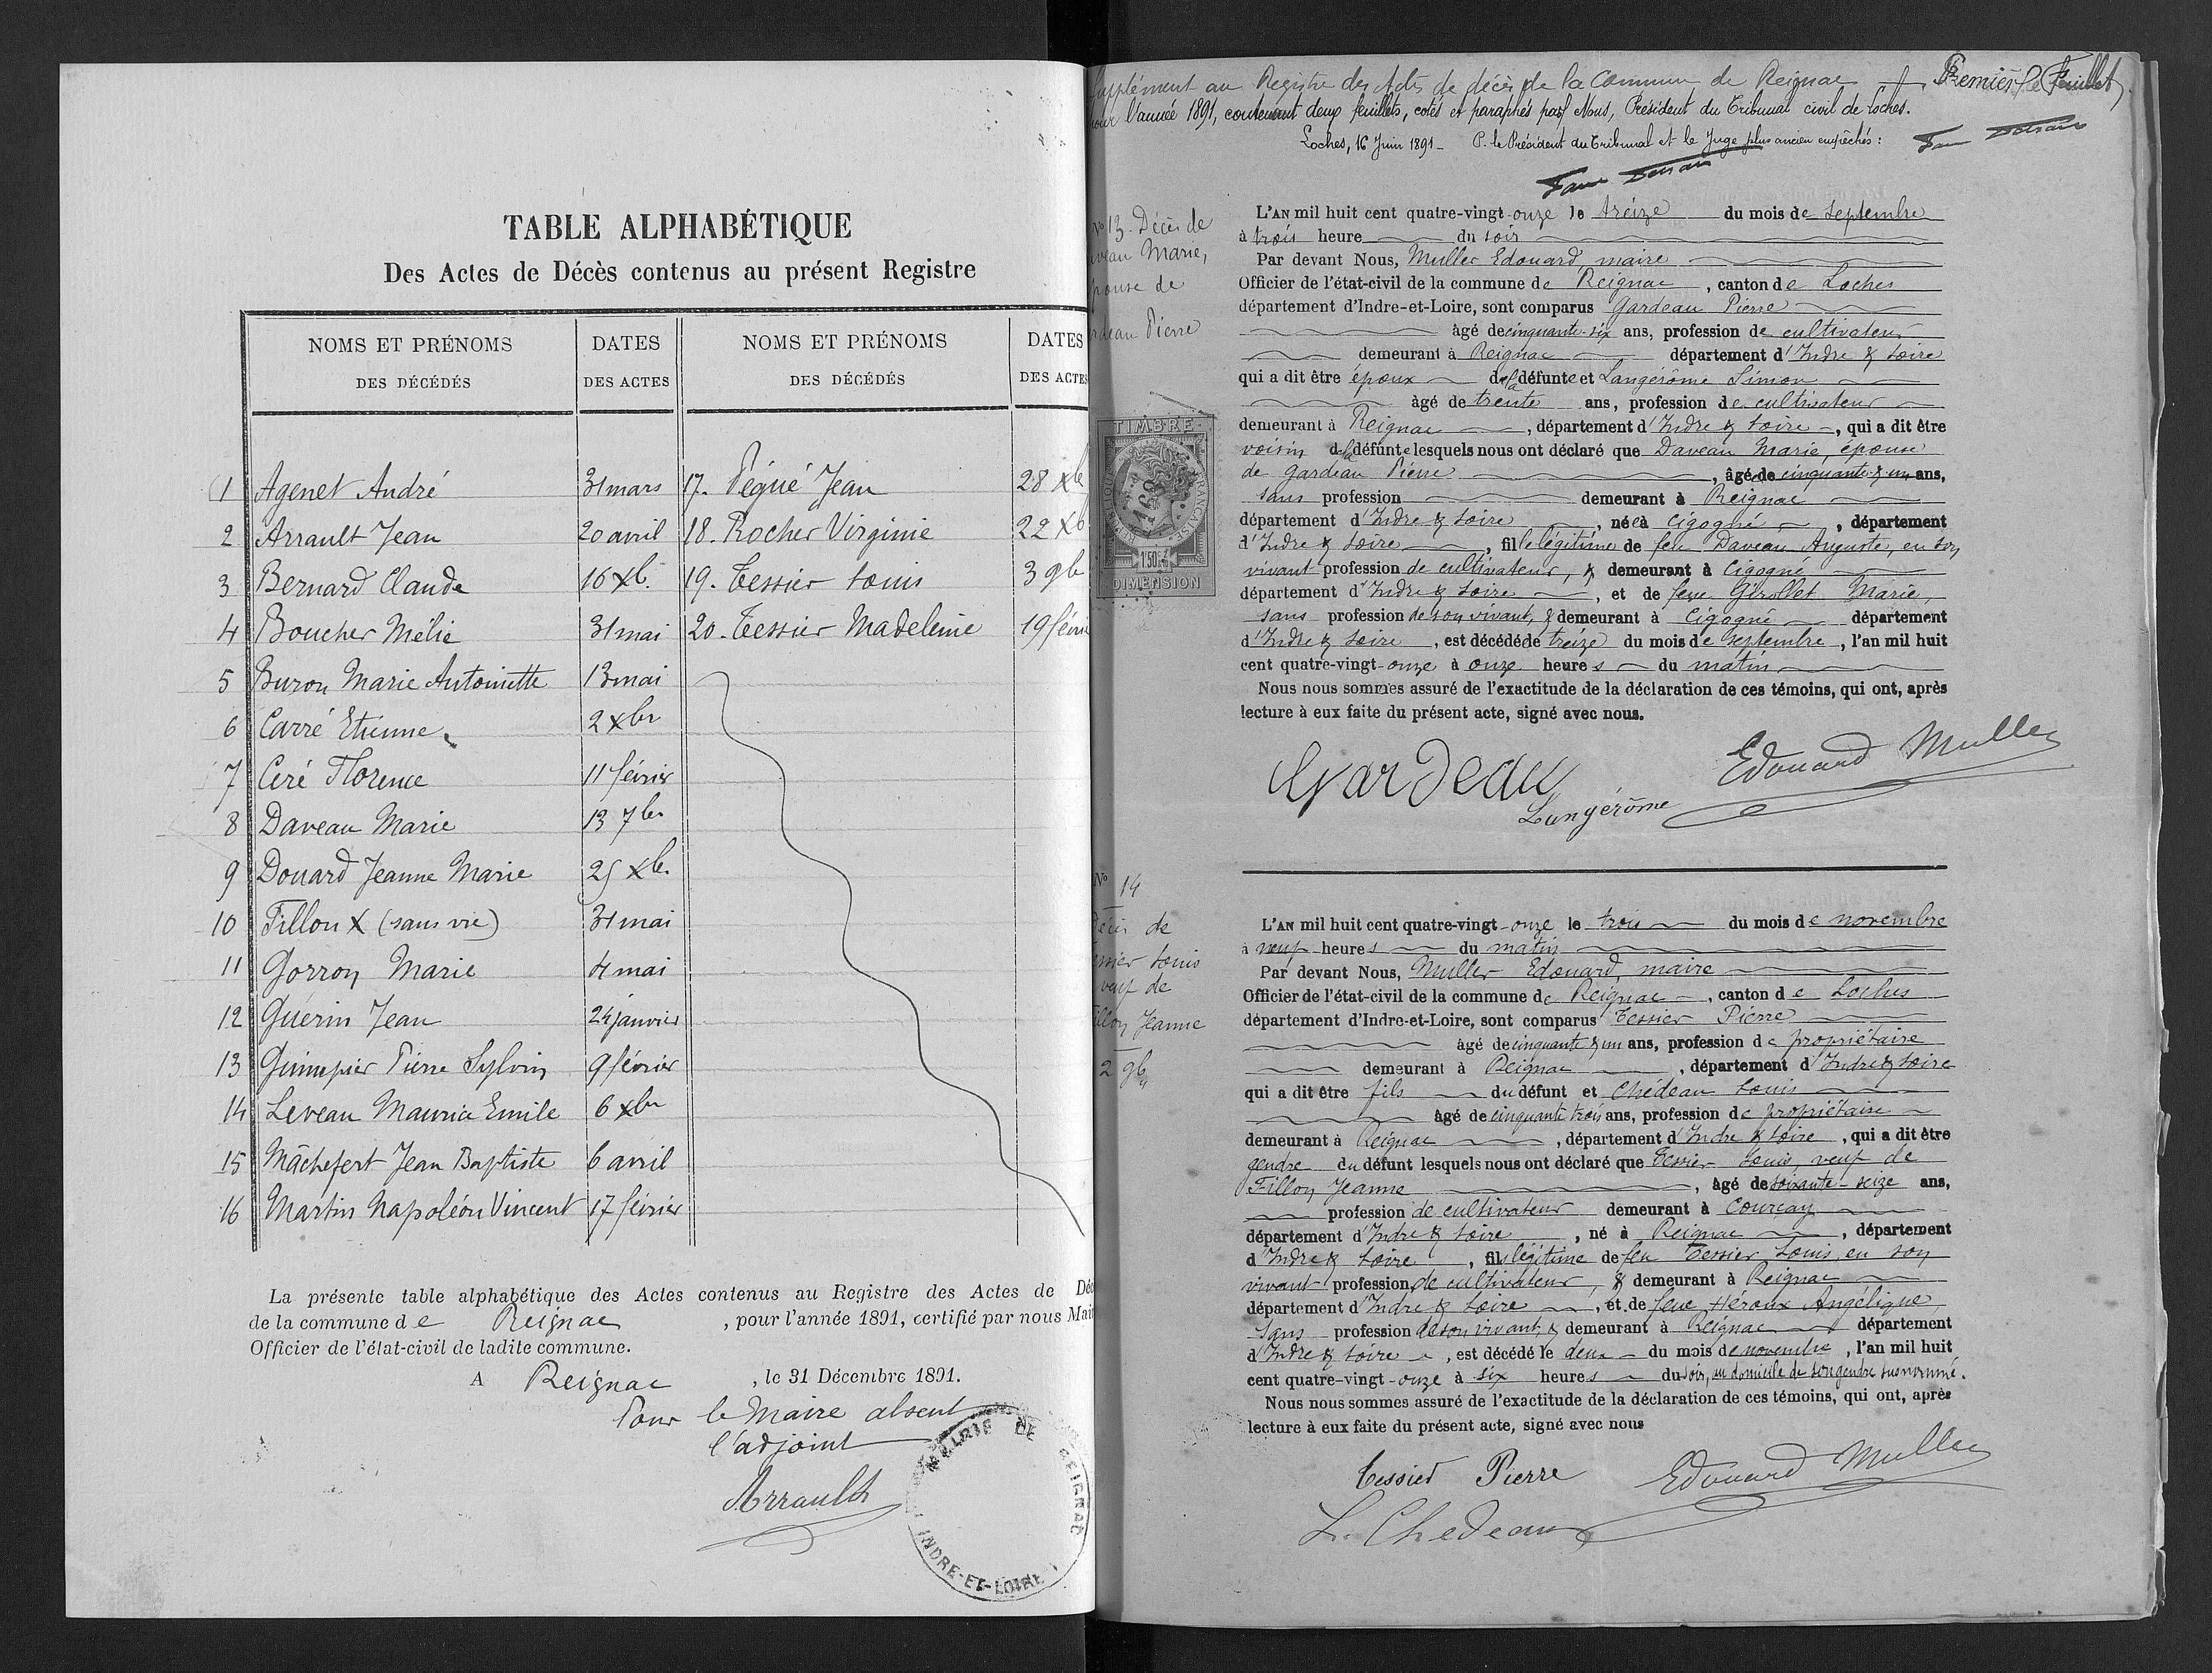 TABLE ALPHABÉTIQUE
Des Actes de Décès contenus au présent Registre
NOMS ET PRÉNOMS DES DÉCÉDÉS | DATES DES ACTES | NOMS ET PRÉNOMS DES DÉCÉDÉS | DATES DES ACTES
1 Agenet André 31 mars 17. Pégué Jean 28 xbe
2 Arrault Jean 20 avril 18. Rocher Virginie 22 xb
3 Bernard Claude 16 xb. 19. Tessier Louis 3 9b
4 Boucher Mélie 31 mai 20. Tessier Madeleine 19 févri
5 Buron Marie Antoinette 13 mai
6 Carré Etienne 2 xbr
7 Ceré Florence 11 février
8 Daveau Marie 13 7br
9 Douard Jeanne Marie 25 xbe
10 Fillon X (sans vie) 31 mai
11 Gorron Marie 4 mai
12 Guérin Jean 24 janvier
13 Guimpier Pierre Sylvin 9 février
14 Leveau Maurice Emile 6 xbr
15 Mâchefert Jean Baptiste 6 avril
16 Martin Napoléon Vincent 17 février
La présente table alphabétique des Actes contenus au Registre des Actes de Déc
de la commune de Reignac , pour l'année 1891, certifié par nous Mai
Officier de l'état-civil de ladite commune.
A Reignac , le 31 Décembre 1891.
Pour le Maire absent
l'adjoint
Arrault
MAIRIE DE REIGNAC
INDRE-ET-LOIRE
Supplément au Registre des Actes de décès de la Commune de Reignac Premier Feuillet
pour l'année 1891, contenant deux feuillets, cotés et paraphés par Nous, Président du Tribunal civil de Loches.
Loches, 16 Juin 1891 - P. le Président du Tribunal et le Juge plus ancien empêchés :
No 13 - Décès de
veau Marie,
pouse de
rdeau Pierre
TIMBRE
FRANÇAISE
168
1f50c
DIMENSION
L'AN mil huit cent quatre-vingt-onze le treize du mois de Septembre
à trois heure du soir
Par devant Nous, Muller Edouard, maire
Officier de l'état-civil de la commune de Reignac , canton de Loches
département d'Indre-et-Loire, sont comparus Gardeau Pierre
âgé de cinquante-six ans, profession de cultivateur
demeurant à Reignac département d'Indre & Loire
qui a dit être époux de la défunte et Langérôme Simon
âgé de trente ans, profession de cultivateur
demeurant à Reignac , département d'Indre & Loire , qui a dit être
voisin de la défunte lesquels nous ont déclaré que Daveau Marie, épouse
de Gardeau Pierre , âgée de cinquante & un ans,
sans profession demeurant à Reignac
département d'Indre & Loire , née à Cigogné , département
d'Indre & Loire , fille légitime de feu Daveau Auguste, en son
vivant profession de cultivateur, & demeurant à Cigogné
département d'Indre & Loire , et de feue Girollet Marie,
sans profession de son vivant, & demeurant à Cigogné département
d'Indre & Loire , est décédée de treize du mois de Septembre , l'an mil huit
cent quatre-vingt-onze à onze heures du matin
Nous nous sommes assuré de l'exactitude de la déclaration de ces témoins, qui ont, après
lecture à eux faite du présent acte, signé avec nous.
Gardeau Edouard Muller
Langérôme
No 14
écès de
essier Louis
veuf de
illon Jeanne
2 9b
L'AN mil huit cent quatre-vingt-onze le trois du mois de novembre
à neuf heures du matin
Par devant Nous, Muller Edouard, maire
Officier de l'état-civil de la commune de Reignac , canton de Loches
département d'Indre-et-Loire, sont comparus Tessier Pierre
âgé de cinquante & un ans, profession de propriétaire
demeurant à Reignac , département d'Indre & Loire
qui a dit être fils du défunt et Chédeau Louis
âgé de cinquante trois ans, profession de propriétaire
demeurant à Reignac , département d'Indre & Loire , qui a dit être
gendre du défunt lesquels nous ont déclaré que Tessier Louis, veuf de
Fillon Jeanne , âgé de soixante-seize ans,
profession de cultivateur demeurant à Courçay
département d'Indre & Loire , né à Reignac , département
d'Indre & Loire , fils légitime de feu Tessier Louis, en son
vivant profession de cultivateur, & demeurant à Reignac
département d'Indre & Loire , et de feue Héroux Angélique
sans profession de son vivant, & demeurant à Reignac département
d'Indre & Loire , est décédé le deux du mois de novembre , l'an mil huit
cent quatre-vingt-onze à six heures du soir, au domicile de son gendre susnommé.
Nous nous sommes assuré de l'exactitude de la déclaration de ces témoins, qui ont, après
lecture à eux faite du présent acte, signé avec nous
Tessier Pierre Edouard Muller
L. Chedeau